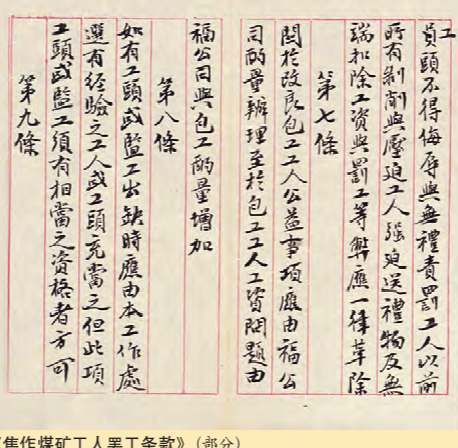 工
員頭不得侮辱與無禮責罰工人以前
所有剥削與壓迫工人强迫送禮物及無
端扣除工資與罰工等弊應一律革除
第七條
關於改良包工工人公益事項應由福公
司酌量辦理至於包工工人工資問題由
福公司與包工酌量增加
第八條
如有工頭或監工出缺時應由本工作處
選有經驗之工人或工頭充當之但此項
工頭或監工須有相當之資格者方可
第九條
《焦作煤矿工人罢工条款》（部分）